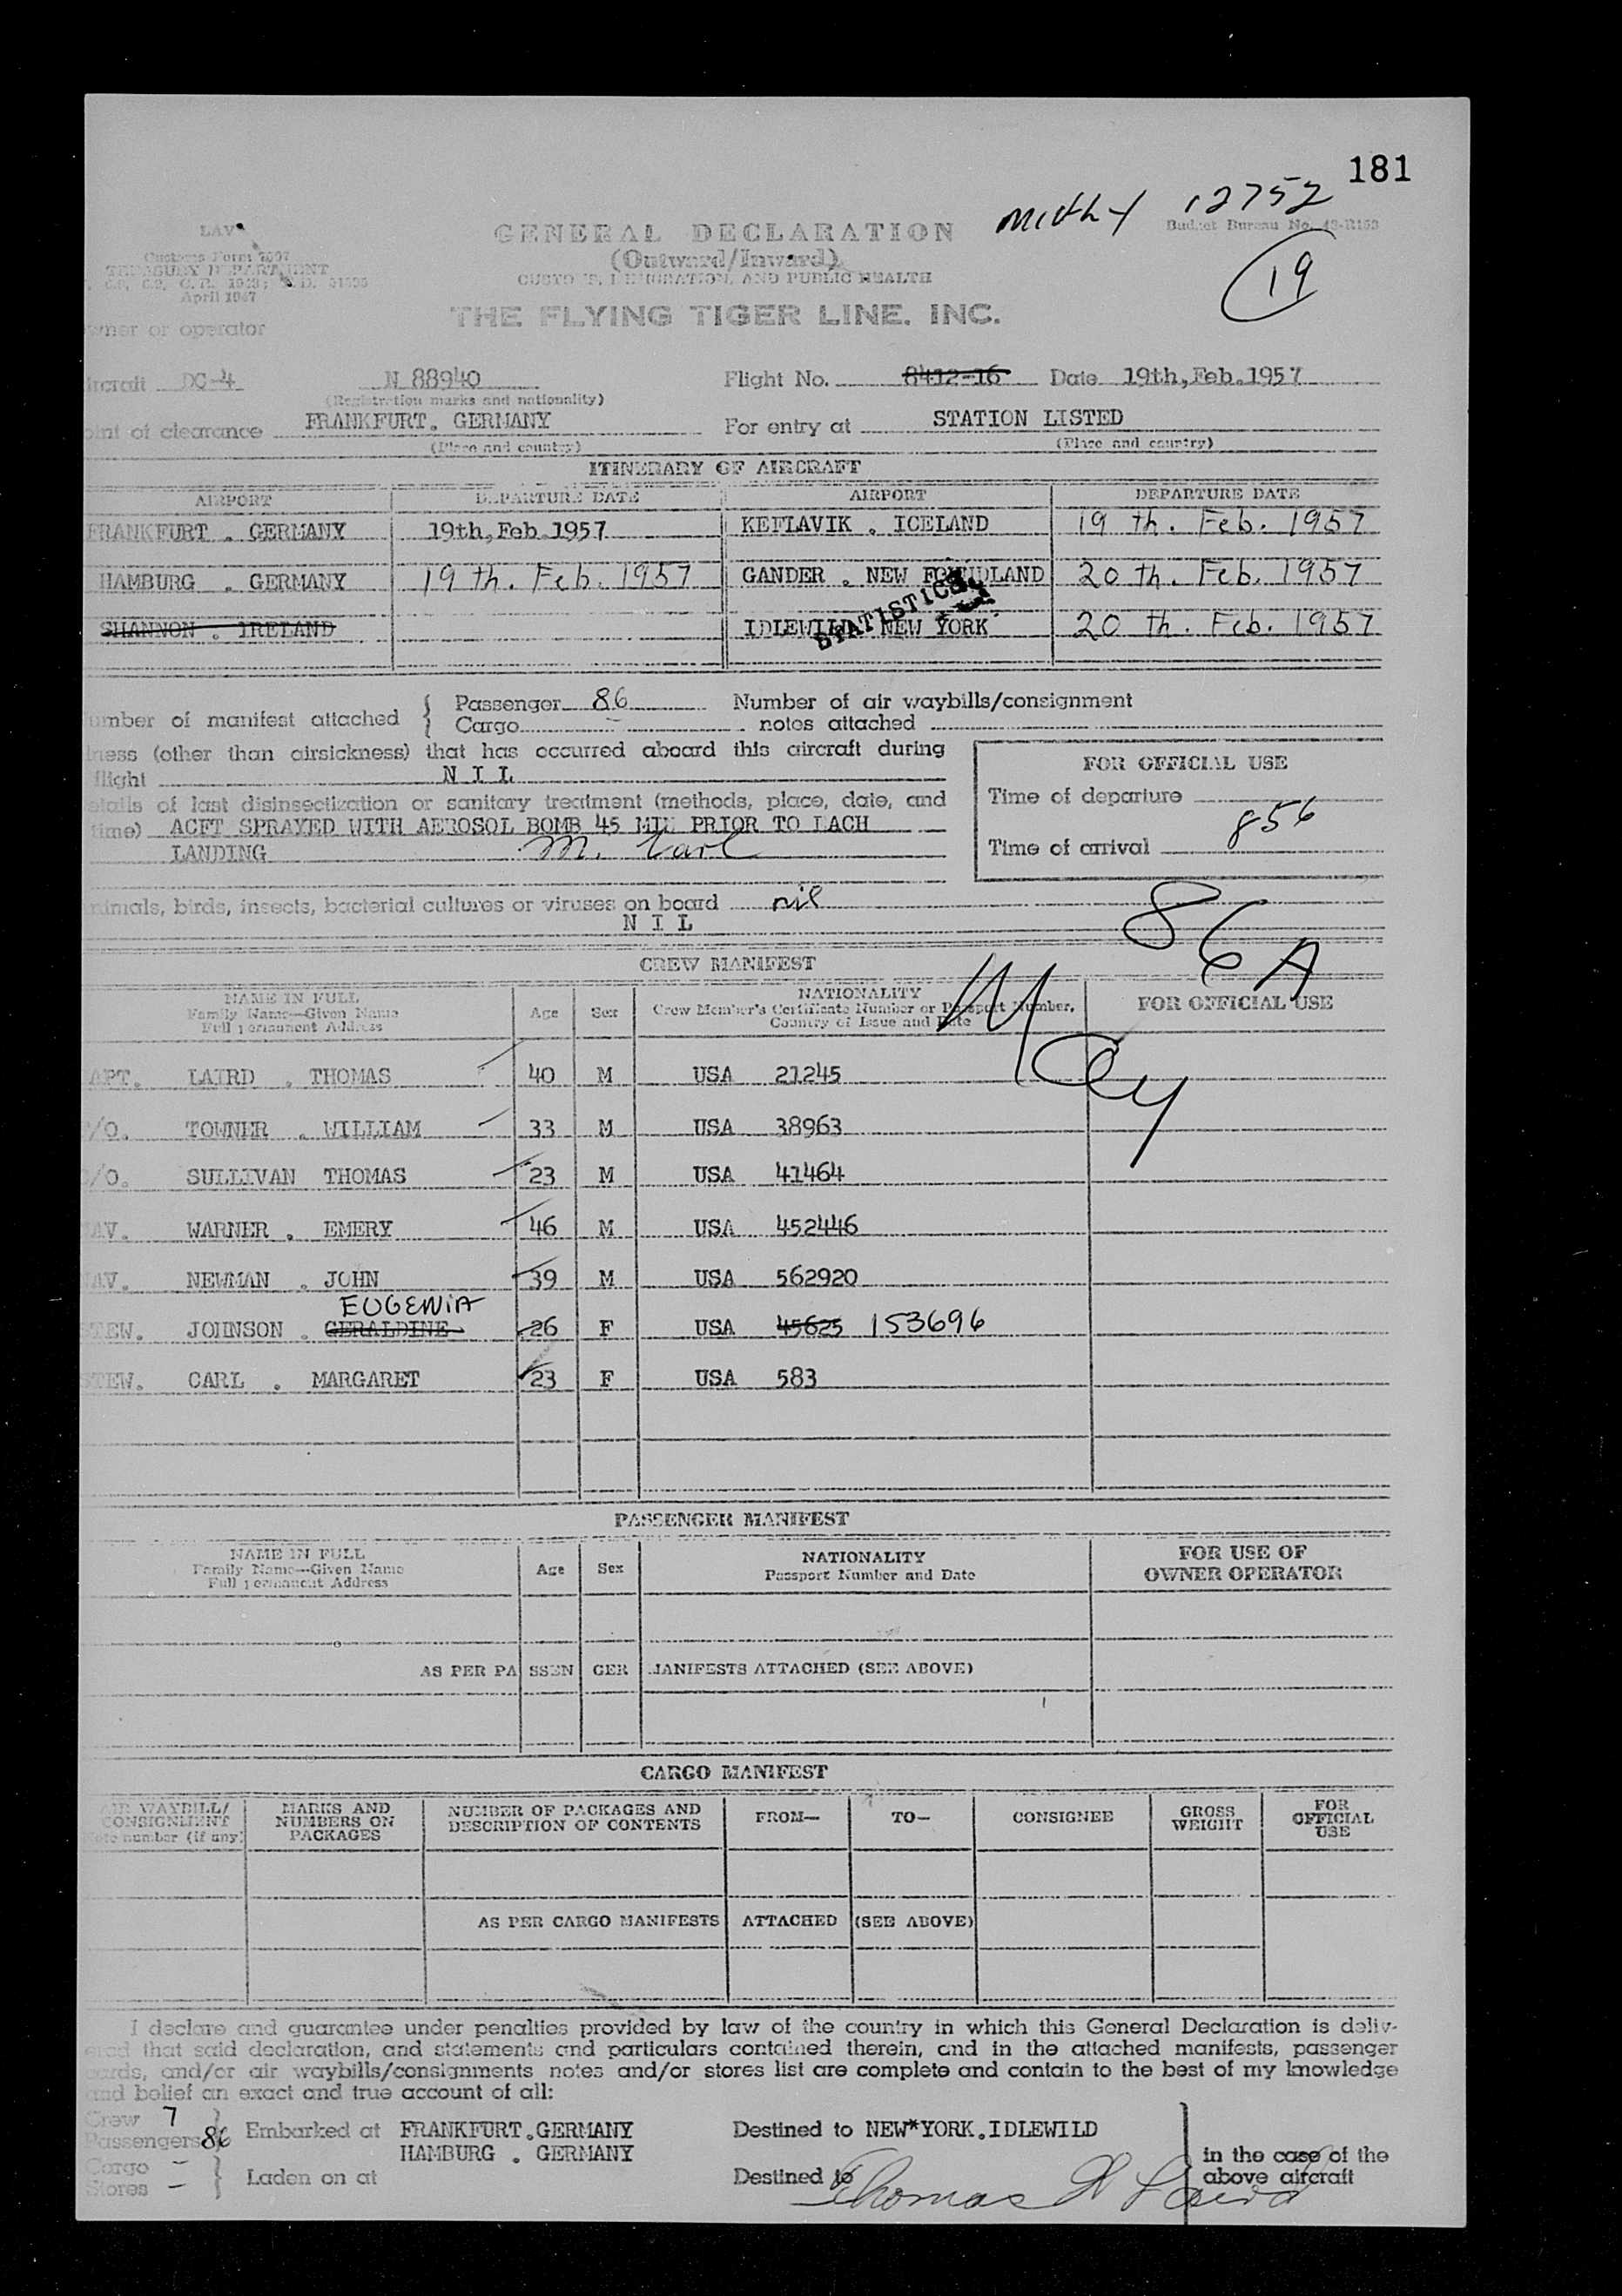 181
12752
Budget Bureau No. 48-R153
LAV
GENERAL DECLARATION
(Outward/Inward)
19
Customs Form 7507
TREASURY DEPARTMENT
CUSTOMS, IMMIGRATION, AND PUBLIC HEALTH
April 1947
THE FLYING TIGER LINE. INC.
wner or operator
ircraft DC-4 N 88940 Flight No. 8412-16 Date 19th,Feb.1957
(Registration marks and nationality)
oint of clearance FRANKFURT. GERMANY For entry at STATION LISTED
(Place and country) (Place and country)
ITINERARY OF AIRCRAFT
AIRPORT DEPARTURE DATE AIRPORT DEPARTURE DATE
FRANKFURT . GERMANY 19th,Feb.1957 KEFLAVIK . ICELAND 19 th. Feb. 1957
HAMBURG . GERMANY 19 th. Feb. 1957 GANDER . NEW DLAND 20 th. Feb. 1957
STATISTICS
SHANNON . IRELAND IDLEWILD NEW YORK 20 th. Feb. 1957
umber of manifest attached } Passenger 86 Number of air waybills/consignment
Cargo - notes attached
lness (other than airsickness) that has occurred aboard this aircraft during
flight N I L
FOR OFFICIAL USE
etails of last disinsectization or sanitary treatment (methods, place, date, and
Time of departure
time) ACFT SPRAYED WITH AEROSOL BOMB 45 MIN PRIOR TO EACH
LANDING M. Carl
Time of arrival 856
nimals, birds, insects, bacterial cultures or viruses on board nil
N I L
86 A
CREW MANIFEST
NAME IN FULL
Family Name—Given Name
Full Permanent Address
Age Sex
NATIONALITY
Crew Member's Certificate Number or Passport Number,
Country of Issue and Date
FOR OFFICIAL USE
APT. LAIRD . THOMAS 40 M USA 21245
/O. TOWNER . WILLIAM 33 M USA 38963
/O. SULLIVAN THOMAS 23 M USA 41464
AV. WARNER . EMERY 46 M USA 452446
AV. NEWMAN . JOHN 39 M USA 562920
EUGENIA
TEW. JOHNSON . GERALDINE 26 F USA 45625 153696
TEW. CARL . MARGARET 23 F USA 583
PASSENGER MANIFEST
NAME IN FULL
Family Name—Given Name
Full Permanent Address
Age Sex
NATIONALITY
Passport Number and Date
FOR USE OF
OWNER OPERATOR
AS PER PA SSEN GER MANIFESTS ATTACHED (SEE ABOVE)
CARGO MANIFEST
AIR WAYBILL/
CONSIGNMENT
Note number (if any)
MARKS AND
NUMBERS ON
PACKAGES
NUMBER OF PACKAGES AND
DESCRIPTION OF CONTENTS
FROM— TO— CONSIGNEE
GROSS
WEIGHT
FOR
OFFICIAL
USE
AS PER CARGO MANIFESTS ATTACHED (SEE ABOVE)
I declare and guarantee under penalties provided by law of the country in which this General Declaration is deliv-
ered that said declaration, and statements and particulars contained therein, and in the attached manifests, passenger
cards, and/or air waybills/consignments notes and/or stores list are complete and contain to the best of my knowledge
and belief an exact and true account of all:
Crew 7
Passengers 86 } Embarked at FRANKFURT.GERMANY Destined to NEW*YORK.IDLEWILD
HAMBURG . GERMANY
in the case of the
Cargo -
Stores - } Laden on at Destined to above aircraft
Thomas Laird